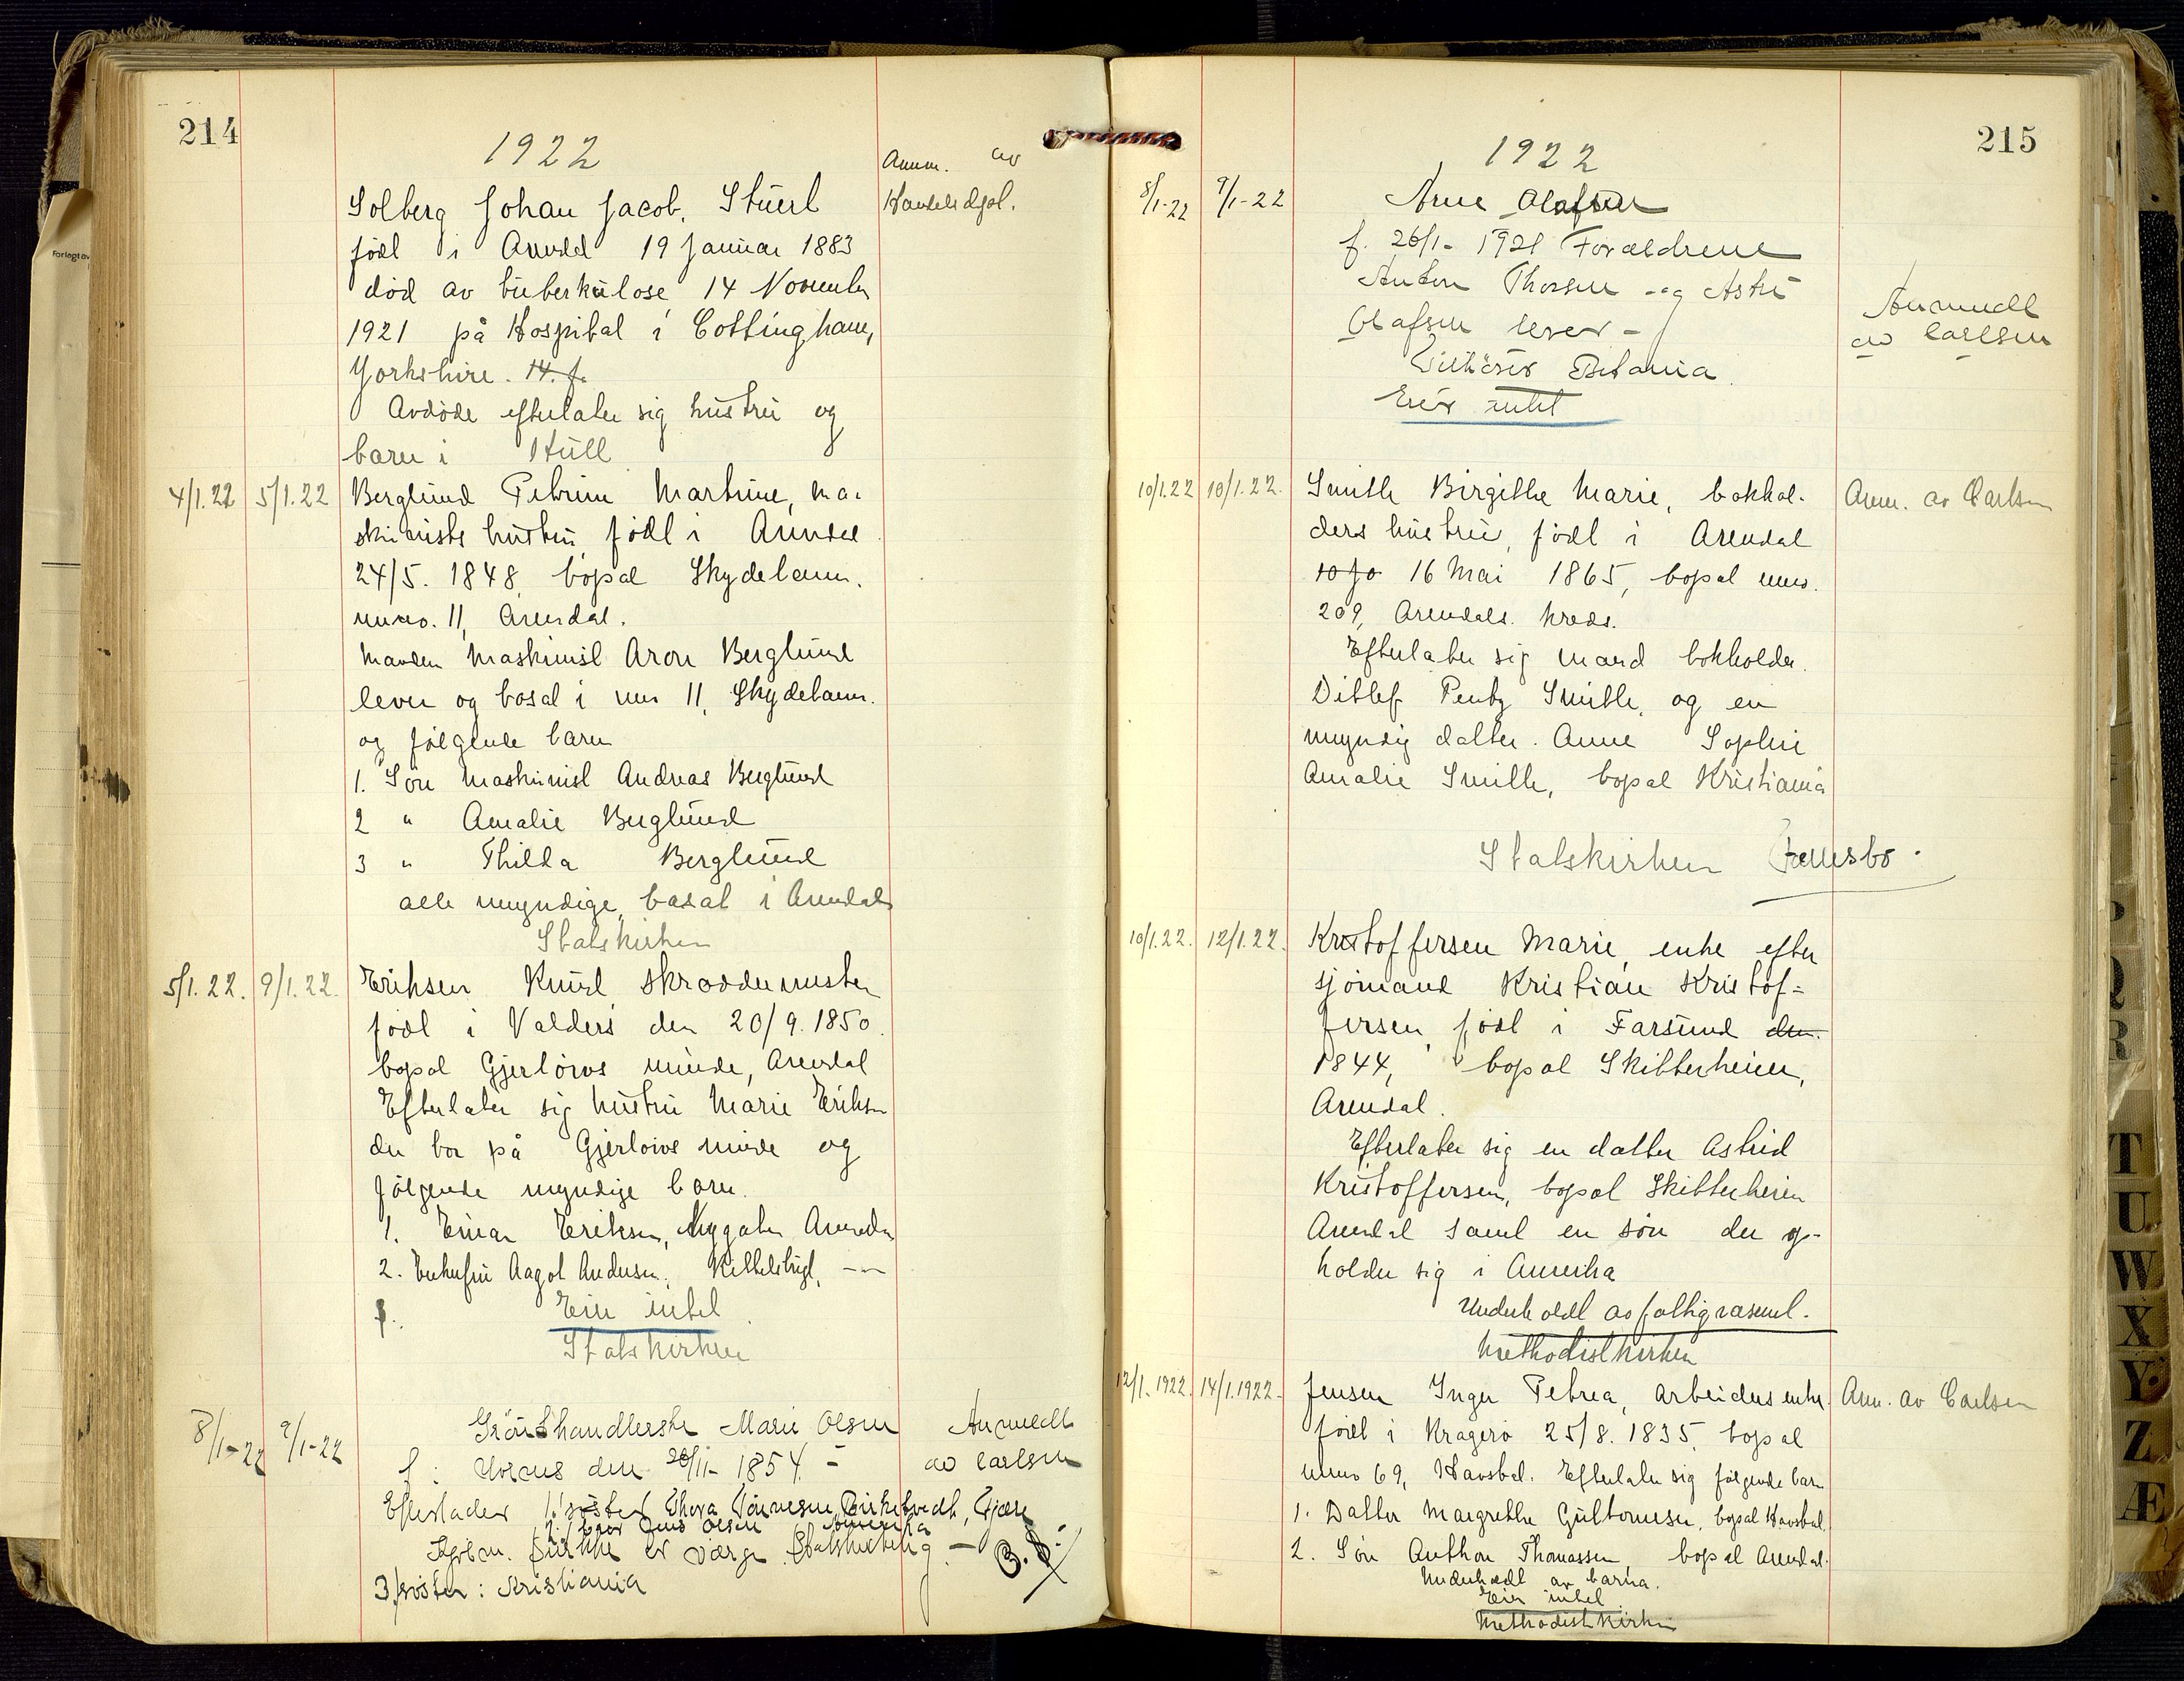 214
1922
Anm. av
Handelsdpt.
Solberg Johan Jacob, Stuert
født i Arendal 19 Januar 1883
død av tuberkulose 14 November
1921 på Hospital i Cottingham,
Yorkshire. 14. f.
Avdøde efterlater sig hustru og
barn i Hull
4/1.22 5/1.22 Berglund Petrine Martine, ma-
skinists hustru, født i Arendal
24/5. 1848, bopæl Skydebann.
numro. 11, Arendal.
Manden Maskinist Aron Berglund
lever og bosat i nm 11, Skydebann.
og følgende barn
1. Søn Maskinist Andreas Berglund
2 " Amalie Berglund
3 " Thilda Berglund
alle myndige, bosat i Arendal
Statskirken
5/1.22. 9/1.22. Eriksen Knud skræddermester
født i Valders den 20/9.1850.
bopæl Gjerløws minde, Arendal
Efterlater sig hustru Marie Eriksen
der bor på Gjerløws minde og
følgende myndige barn.
1. Einar Eriksen, Nygaten Arendal
2. Enkefru Aagot Andersen, Kittelsbugt, -"-
Eier intet
Statskirken
8/1-22 9/1-22 Grønthandlerske Marie Olsen
f: den 28/11- 1854. -
Anmeldt
av Carlsen
Efterlader 1. søster Thora Tønnesen, Birketvedt, Fjære
2. bror Jens Olsen Amerika
er værge. Statskirkelig -
3. søster: Kristiania
215
1922
8/1-22 9/1-22 Arne Olafsen
f. 26/1- 1921 Forældrene
Anton Thorsen og Astri
Olafsen lever -
Betania.
Eier intet
Anmeldt
av Carlsen
10/1.22 10/1.22. Smith Birgithe Marie, bokhol-
ders hustru, født i Arendal
16 Mai 1865, bopæl nmr.
209, Arendals. kreds.
Efterlater sig mand bokholder.
Ditlef Pentz Smith, og en
myndig datter. Anne Sophie
Amalie Smith, bopæl Kristiania
Anm. av Carlsen
Statskirken
10/1.22. 12/1.22. Kristoffersen Marie, enke efter
sjømand Kristian Kristof-
fersen, født i Farsund den
1844, bopæl Skitterheien,
Arendal.
Efterlater sig en datter Astrid
Kristoffersen, bopæl Skitterheien
Arendal samt en søn der op-
holder sig i Amerika
Underholdt av fattigvæsenet.
Methodistkirken
12/1.1922. 14/1.1922. Jensen Inger Petrea, arbeidersenke.
født i Kragerø 25/8. 1835, bopæl
numro 69, Havsbd. Efterlater sig følgende barn
Anm. av Carlsen
1. Datter Margrethe Guttormsen, bopæl Havsbd.
2. Søn Anthon Thomassen, bopæl Arendal.
Underholdt av barna.
Eier intet
Methodistkirken
T
U
W
X
Y
Z
Æ